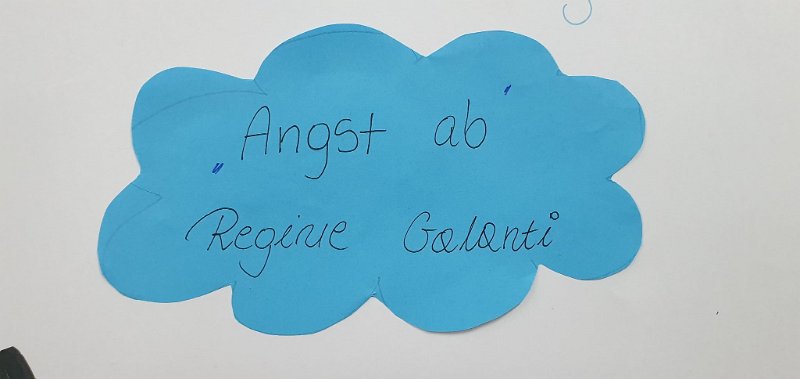 „Angst ab“
Regine Galanti